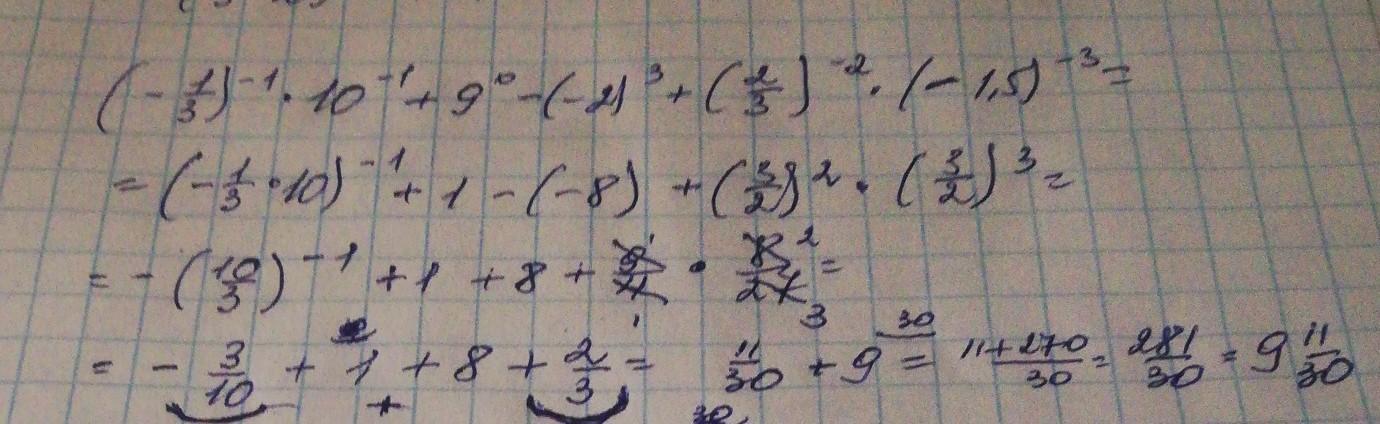 (-1/3)^-1 · 10^-1 + 9^0 - (-2)^3 + (2/3)^-2 · (-1,5)^-3 =
= (-1/3 · 10)^-1 + 1 - (-8) + (3/2)^2 · (3/2)^3 =
= -(10/3)^-1 + 1 + 8 + 9/4 · 8/27 =
= - 3/10 + 1 + 8 + 2/3 = 11/30 + 9 = 11+270/30 = 281/30 = 9 11/30